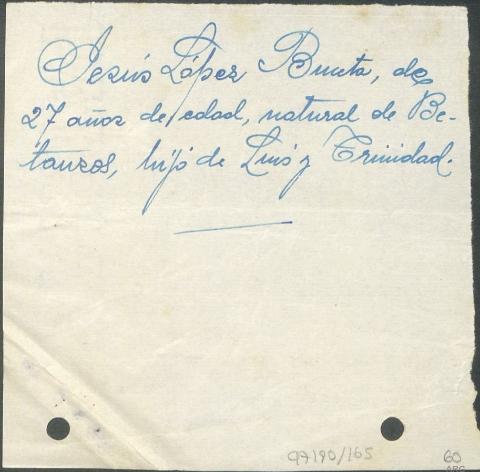 Jesús López Buceta, de
27 años de edad, natural de Be-
tanzos, hijo de Luis y Trinidad.
97190/165
60
ARG